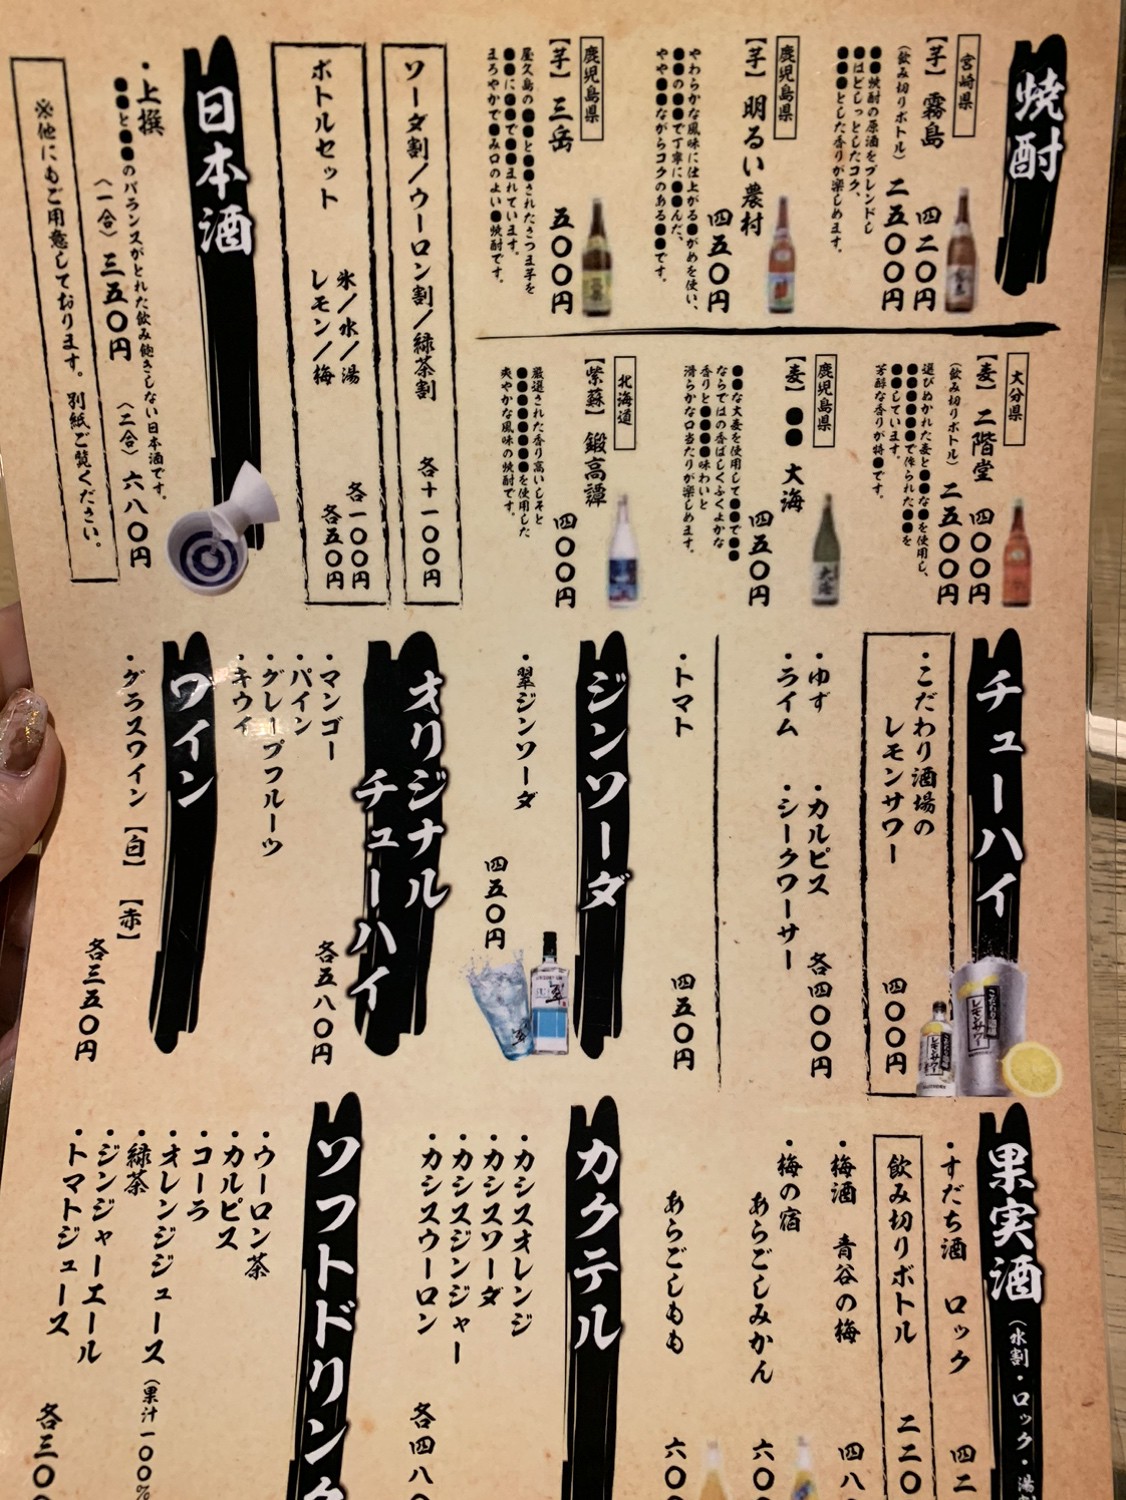 焼酎
宮崎県
【芋】 霧島 四二〇円
(飲み切りボトル) 二五〇〇円
●●焼酎の原酒をブレンドし
●はどしっとしたコク、
●●●とした香りが楽しめます。
鹿児島県
【芋】 明るい農村 四五〇円
やわらかな風味に仕上がる●がめを使い、
●●の●●で丁寧に●●んだ、
やや●●ながらコクのある●●です。
鹿児島県
【芋】 三岳 五〇〇円
屋久島の●●●と●●されたさつま芋を
●●に●●で●●まれています。
まろやかで●み口のよい●焼酎です。
大分県
【麦】 二階堂 四〇〇円
(飲み切りボトル) 二五〇〇円
選びぬかれた麦と●●な●を使用し、
●●●●●●で作られた●●を
●●しています。
芳醇な香りが特●です。
鹿児島県
【麦】 ●● 大海 四五〇円
●●な大麦を使用して●●●で●●
ならではの香ばしくふくよかな
香りと●●●●●味わいと
滑らかな口当たりが楽しめます。
北海道
【紫蘇】 鍛高譚 四〇〇円
厳選された香り高いしそと
●●●●●●●●●を使用した
爽やかな風味の焼酎です。
ソーダ割／ウーロン割／緑茶割 各十一〇〇円
ボトルセット
氷／水／湯 各一〇〇円
レモン／梅 各五〇円
日本酒
・上撰
●●●と●●●のバランスがとれた飲み飽きしない日本酒です。
(一合) 三五〇円 (二合) 六八〇円
※他にもご用意しております。別紙ご覧ください。
チューハイ
・こだわり酒場の
レモンサワー 四〇〇円
・ゆず ・カルピス 各四〇〇円
・ライム ・シークワーサー
・トマト 四五〇円
ジンソーダ
・翠ジンソーダ 四五〇円
オリジナル
チューハイ
・マンゴー
・パイン
・グレープフルーツ
・キウイ
各五八〇円
ワイン
・グラスワイン 【白】 【赤】
各三五〇円
果実酒
(水割・ロック・湯
・すだち酒 ロック 四二
飲み切りボトル 二二〇
・梅酒 青谷の梅 四八
・梅の宿
あらごしみかん 六〇
あらごしもも 六〇
カクテル
・カシスオレンジ
・カシスソーダ
・カシスジンジャー
・カシスウーロン
各四八〇
ソフトドリンク
・ウーロン茶
・カルピス
・コーラ
・オレンジジュース (果汁一〇〇%
・緑茶
・ジンジャーエール
・トマトジュース
各三〇